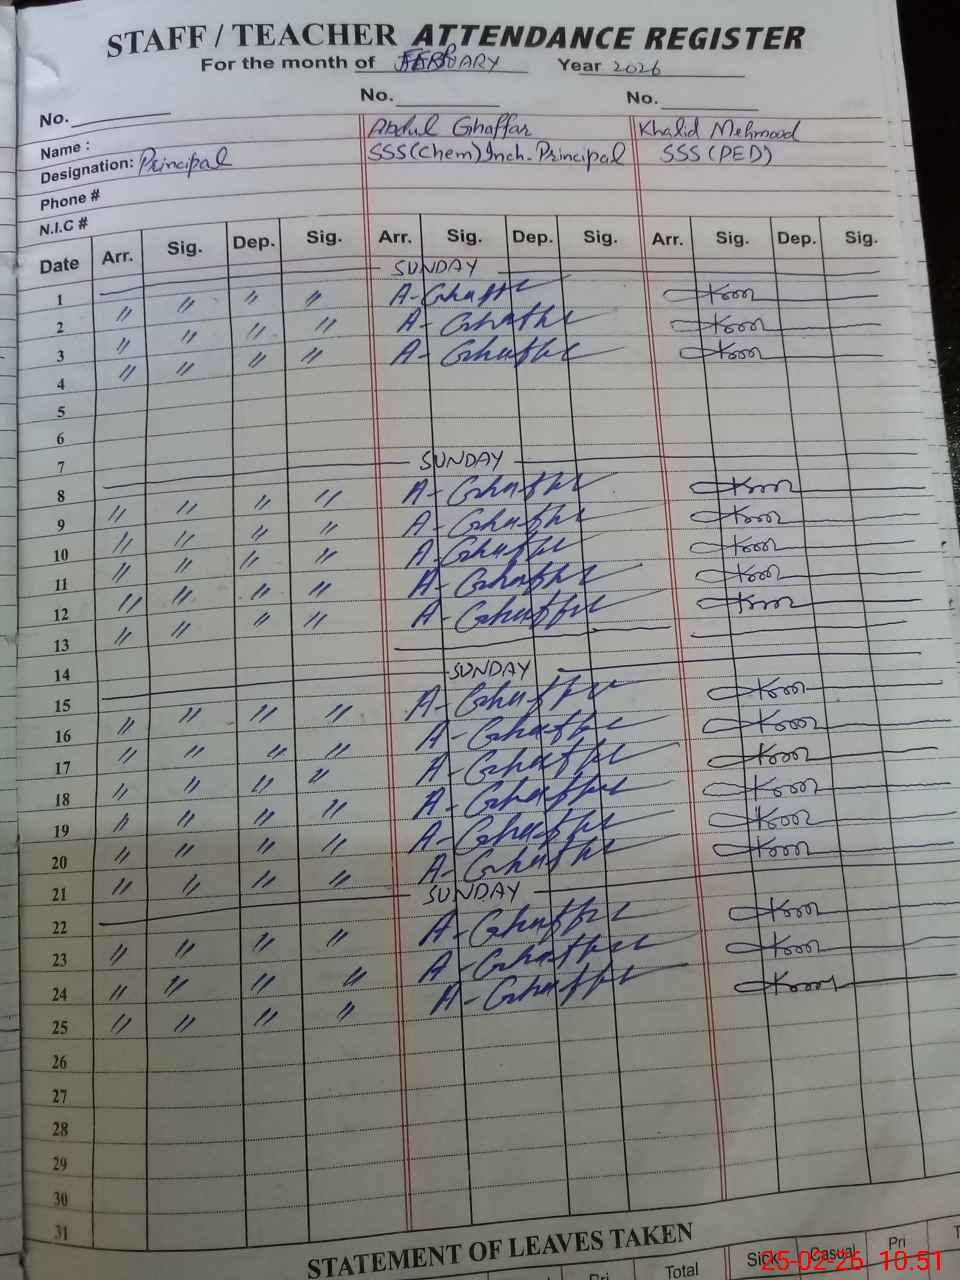 STAFF / TEACHER ATTENDANCE REGISTER
For the month of FEBRUARY Year 2026
No. No. No.
Name : Abdul Ghaffar Khalid Mehmood
Designation: Principal SSS(Chem) Inch. Principal SSS (PED)
Phone #
N.I.C #
Date Arr. Sig. Dep. Sig. Arr. Sig. Dep. Sig. Arr. Sig. Dep. Sig.
1 SUNDAY
2 〃 〃 〃 〃 A-Ghaffar
3 〃 〃 〃 〃 A-Ghaffar
4 〃 〃 〃 〃 A-Ghaffar
5
6
7
8 SUNDAY
9 〃 〃 〃 〃 A-Ghaffar
10 〃 〃 〃 〃 A-Ghaffar
11 〃 〃 〃 〃 A-Ghaffar
12 〃 〃 〃 〃 A-Ghaffar
13 〃 〃 〃 〃 A-Ghaffar
14
15 SUNDAY
16 〃 〃 〃 〃 A-Ghaffar
17 〃 〃 〃 〃 A-Ghaffar
18 〃 〃 〃 〃 A-Ghaffar
19 〃 〃 〃 〃 A-Ghaffar
20 〃 〃 〃 〃 A-Ghaffar
21 〃 〃 〃 〃 A-Ghaffar
22 SUNDAY
23 〃 〃 〃 〃 A-Ghaffar
24 〃 〃 〃 〃 A-Ghaffar
25 〃 〃 〃 〃 A-Ghaffar
26
27
28
29
30
31
STATEMENT OF LEAVES TAKEN
Pri Total Sick Casual Pri
25-02-26 10:51